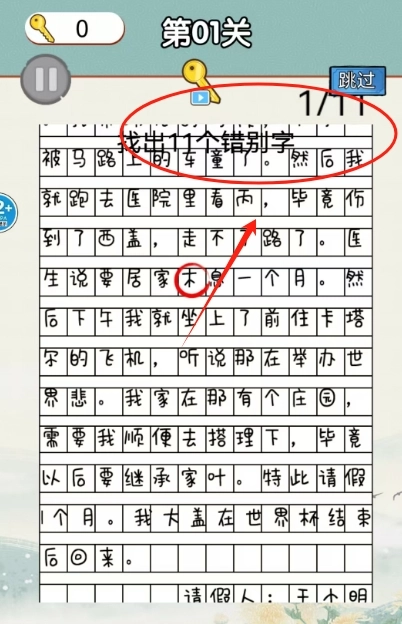 0
第01关
跳过
1/11
找出11个错别字
被马路上的车童了。然后我
就跑去医院里看丙，毕竟伤
到了西盖，走不了路了。医
生说要居家木息一个月。然
后下午我就坐上了前住卡塔
尔的飞机，听说那在举办世
界悲。我家在那有个庄园，
需要我顺便去搭理下，毕竟
以后要继承家叶。特此请假
1个月。我大盖在世界杯结束
后回来。
请假人：王小明